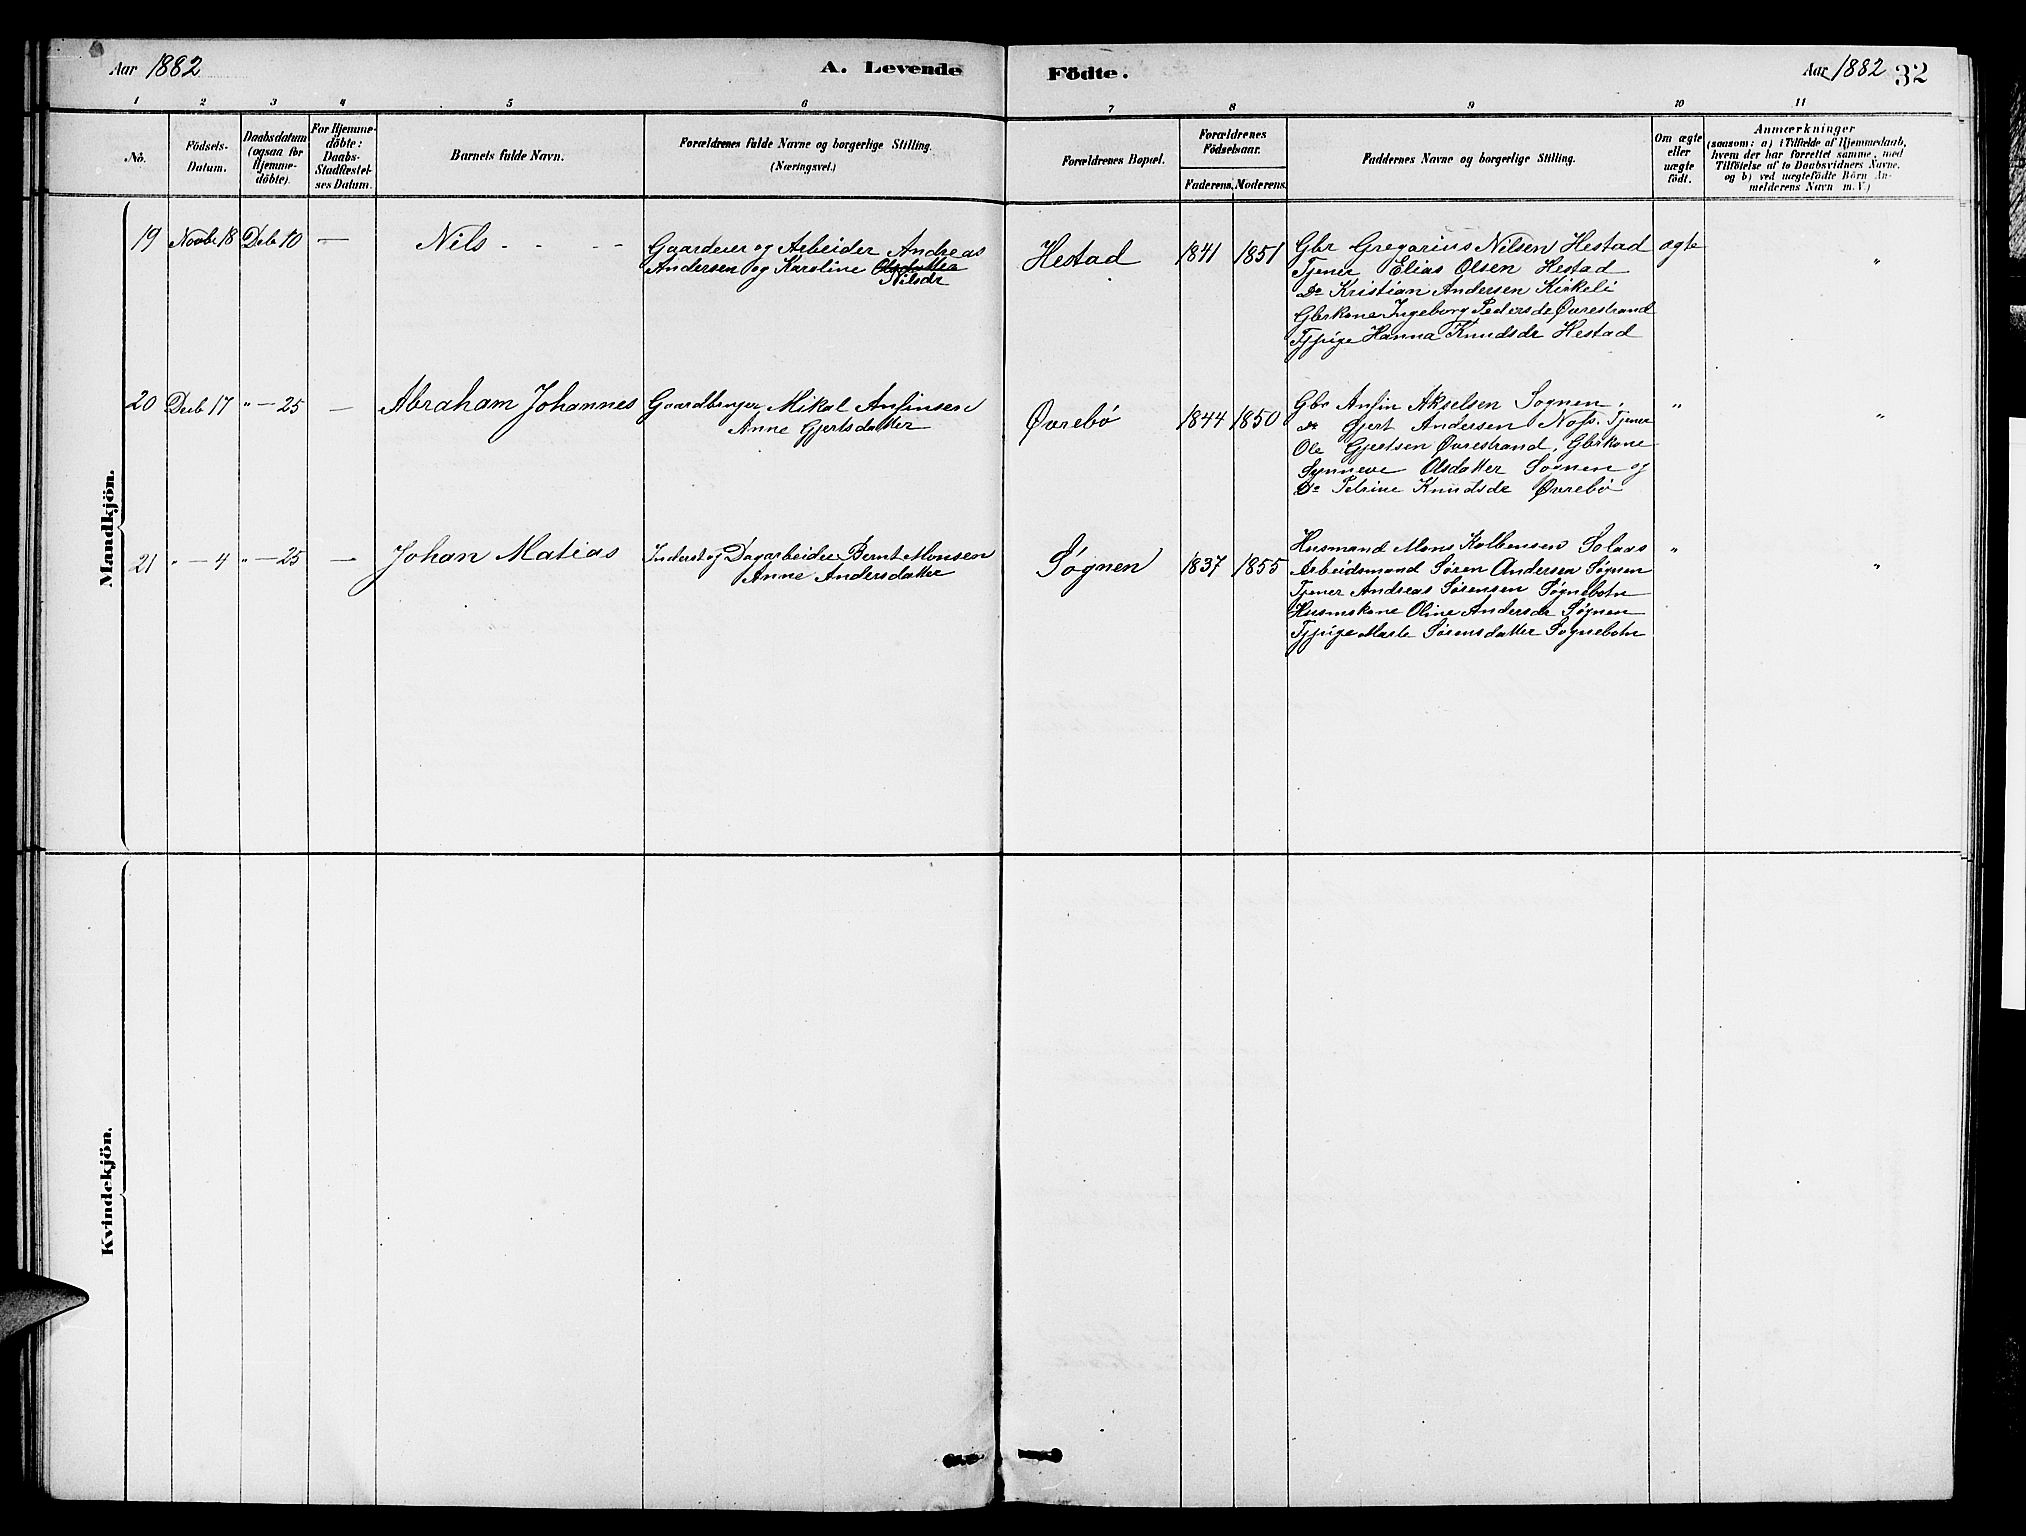 Aar 1882 A. Levende Födte. Aar 1882 32
1 2 3 4 5 6 7 8 9 10 11
No.
Födsels-
Datum.
Daabsdatum
(ogsaa for
Hjemme-
döbte).
For Hjemme-
döbte:
Daabs-
Stadfæstel-
ses Datum.
Barnets fulde Navn.
Forældrenes fulde Navne og borgerlige Stilling.
(Næringsvei.)
Forældrenes Bopæl.
Forældrenes
Födselsaar.
Faderens. Moderens.
Faddernes Navne og borgerlige Stilling.
Om ægte
eller
uægte
födt.
Anmærkninger
(saasom: a) i Tilfælde af Hjemmedaab,
hvem der har forrettet samme, med
Tilföielse af to Daabsvidners Navne.
og b) ved uægtefödte Börn An-
melderens Navn m. V.)
Mandkjön.
19 Novbr 18 Debr 10 — Nils - - -
Gaardeier og Arbeider Andreas
Andersen og Karoline Olsdatter
Nilsdr
Hestad 1841 1851
Gbr Gregorius Nilsen Hestad
Tjener Elias Olsen Hestad
Do Kristian Andersen Kirkeli
Gbrkone Ingeborg Pedersdr Øvrestrand
Tjpige Hanna Knudsdr Hestad
ægte "
20 Debr 17 " — 25 — Abraham Johannes
Gaardbruger Mikal Anfinsen
Anne Gjertsdatter
Øvrebø 1844 1850
Gbr Anfin Akselsen Sognen,
do Gjert Andersen Tjener
Ole Gjertsen Øvrestrand, Gbrkone
Synneve Olsdatter Søgnen og
Do Petrine Knudsdr Øvrebø
" "
21 " — 4 " — 25 — Johan Matias
Inderst og Dagarbeider Bernt Monsen
Anne Andersdatter
Søgnen 1837 1855
Husmand Mons Kolbensen Solaas
Arbeidsmand Søren Andersen Søgnen
Tjener Andreas Sørensen Søgnebotn
Husmskone Oline Andersdr Søgnen
Tjpige Marte Sørensdatter Sognebotn
" "
Kvindekjön.